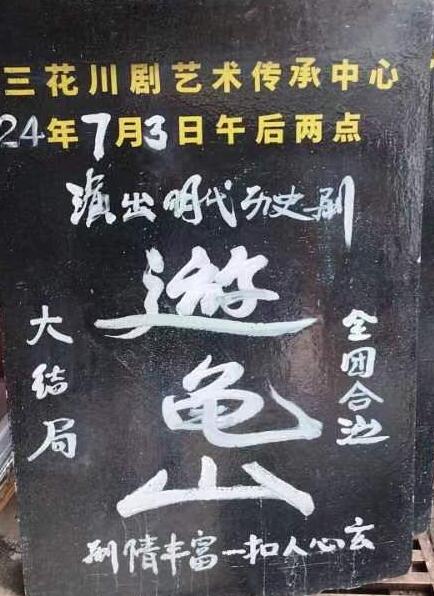 三花川剧艺术传承中心
24年7月3日午后两点
演出明代历史剧
遊龟山
大结局
全团合演
剧情丰富一扣人心玄